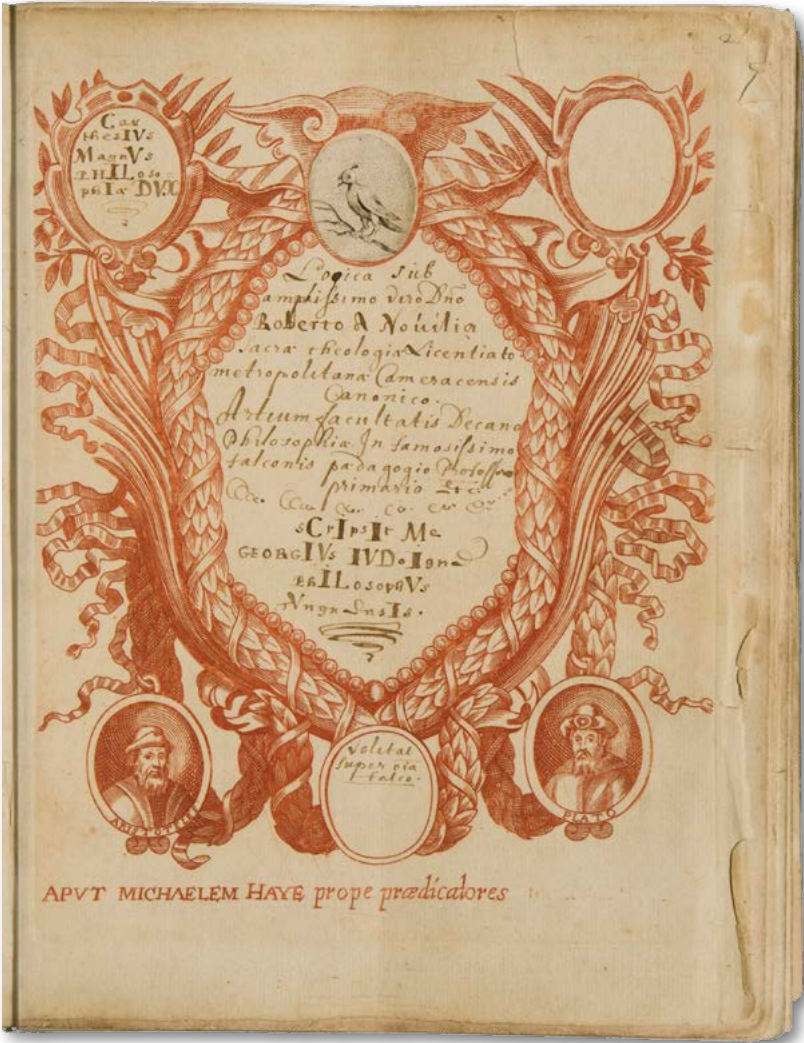 Car
thesIVs
MagnVs
PHILoso
phIæ DVX
Logica sub
amplissimo viro Dño
Roberto A Novilia
Sacræ theologiæ Licentiato
metropolitanæ Cameracensis
Canonico.
Artium facultatis Decano
Philosophiæ In famosissimo
falconis pædagogio Professore
primario Etc
sCrIpsIt Me
GEORGIVs IVDoIgne
PhILosophVs
volitat
super oia
falco.
ARISTOTELE
PLATO
APVT MICHAELEM HAYE prope prædicatores